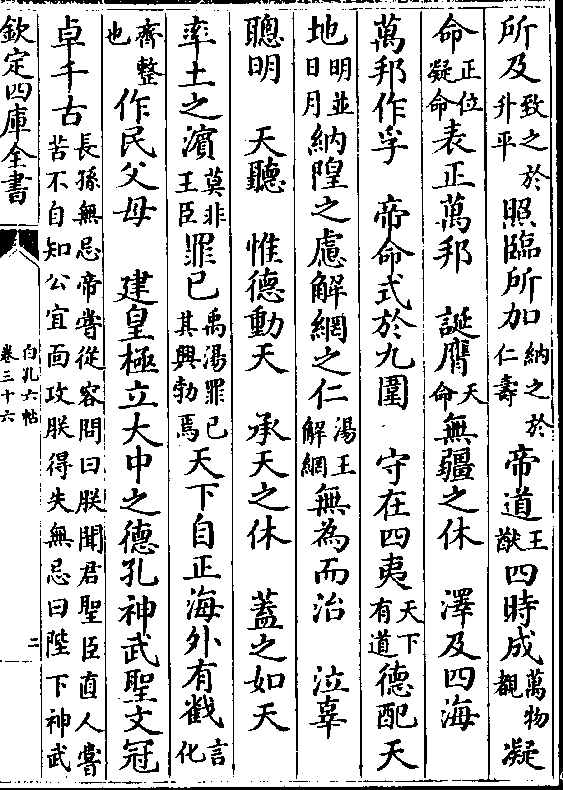 所及致之於升平照臨所加納之於仁壽帝道王猷四時成萬物覩凝
命正位凝命表正萬邦　誕膺天命無疆之休　澤及四海
萬邦作孚　帝命式於九圍　守在四夷天下有道德配天
地明並日月納隍之慮解網之仁湯王解網無為而治　泣辜
聰明　天聽　惟德動天　承天之休　蓋之如天
率土之濵莫非王臣罪已禹湯罪已其興勃焉天下自正海外有截言化
齊整也作民父母　建皇極立大中之德孔神武聖文冠
卓千古長孫無忌帝嘗從容問曰朕聞君聖臣直人嘗苦不自知公宜面攻朕得失無忌曰陛下神武
欽定四庫全書
白孔六帖
卷三十六
二